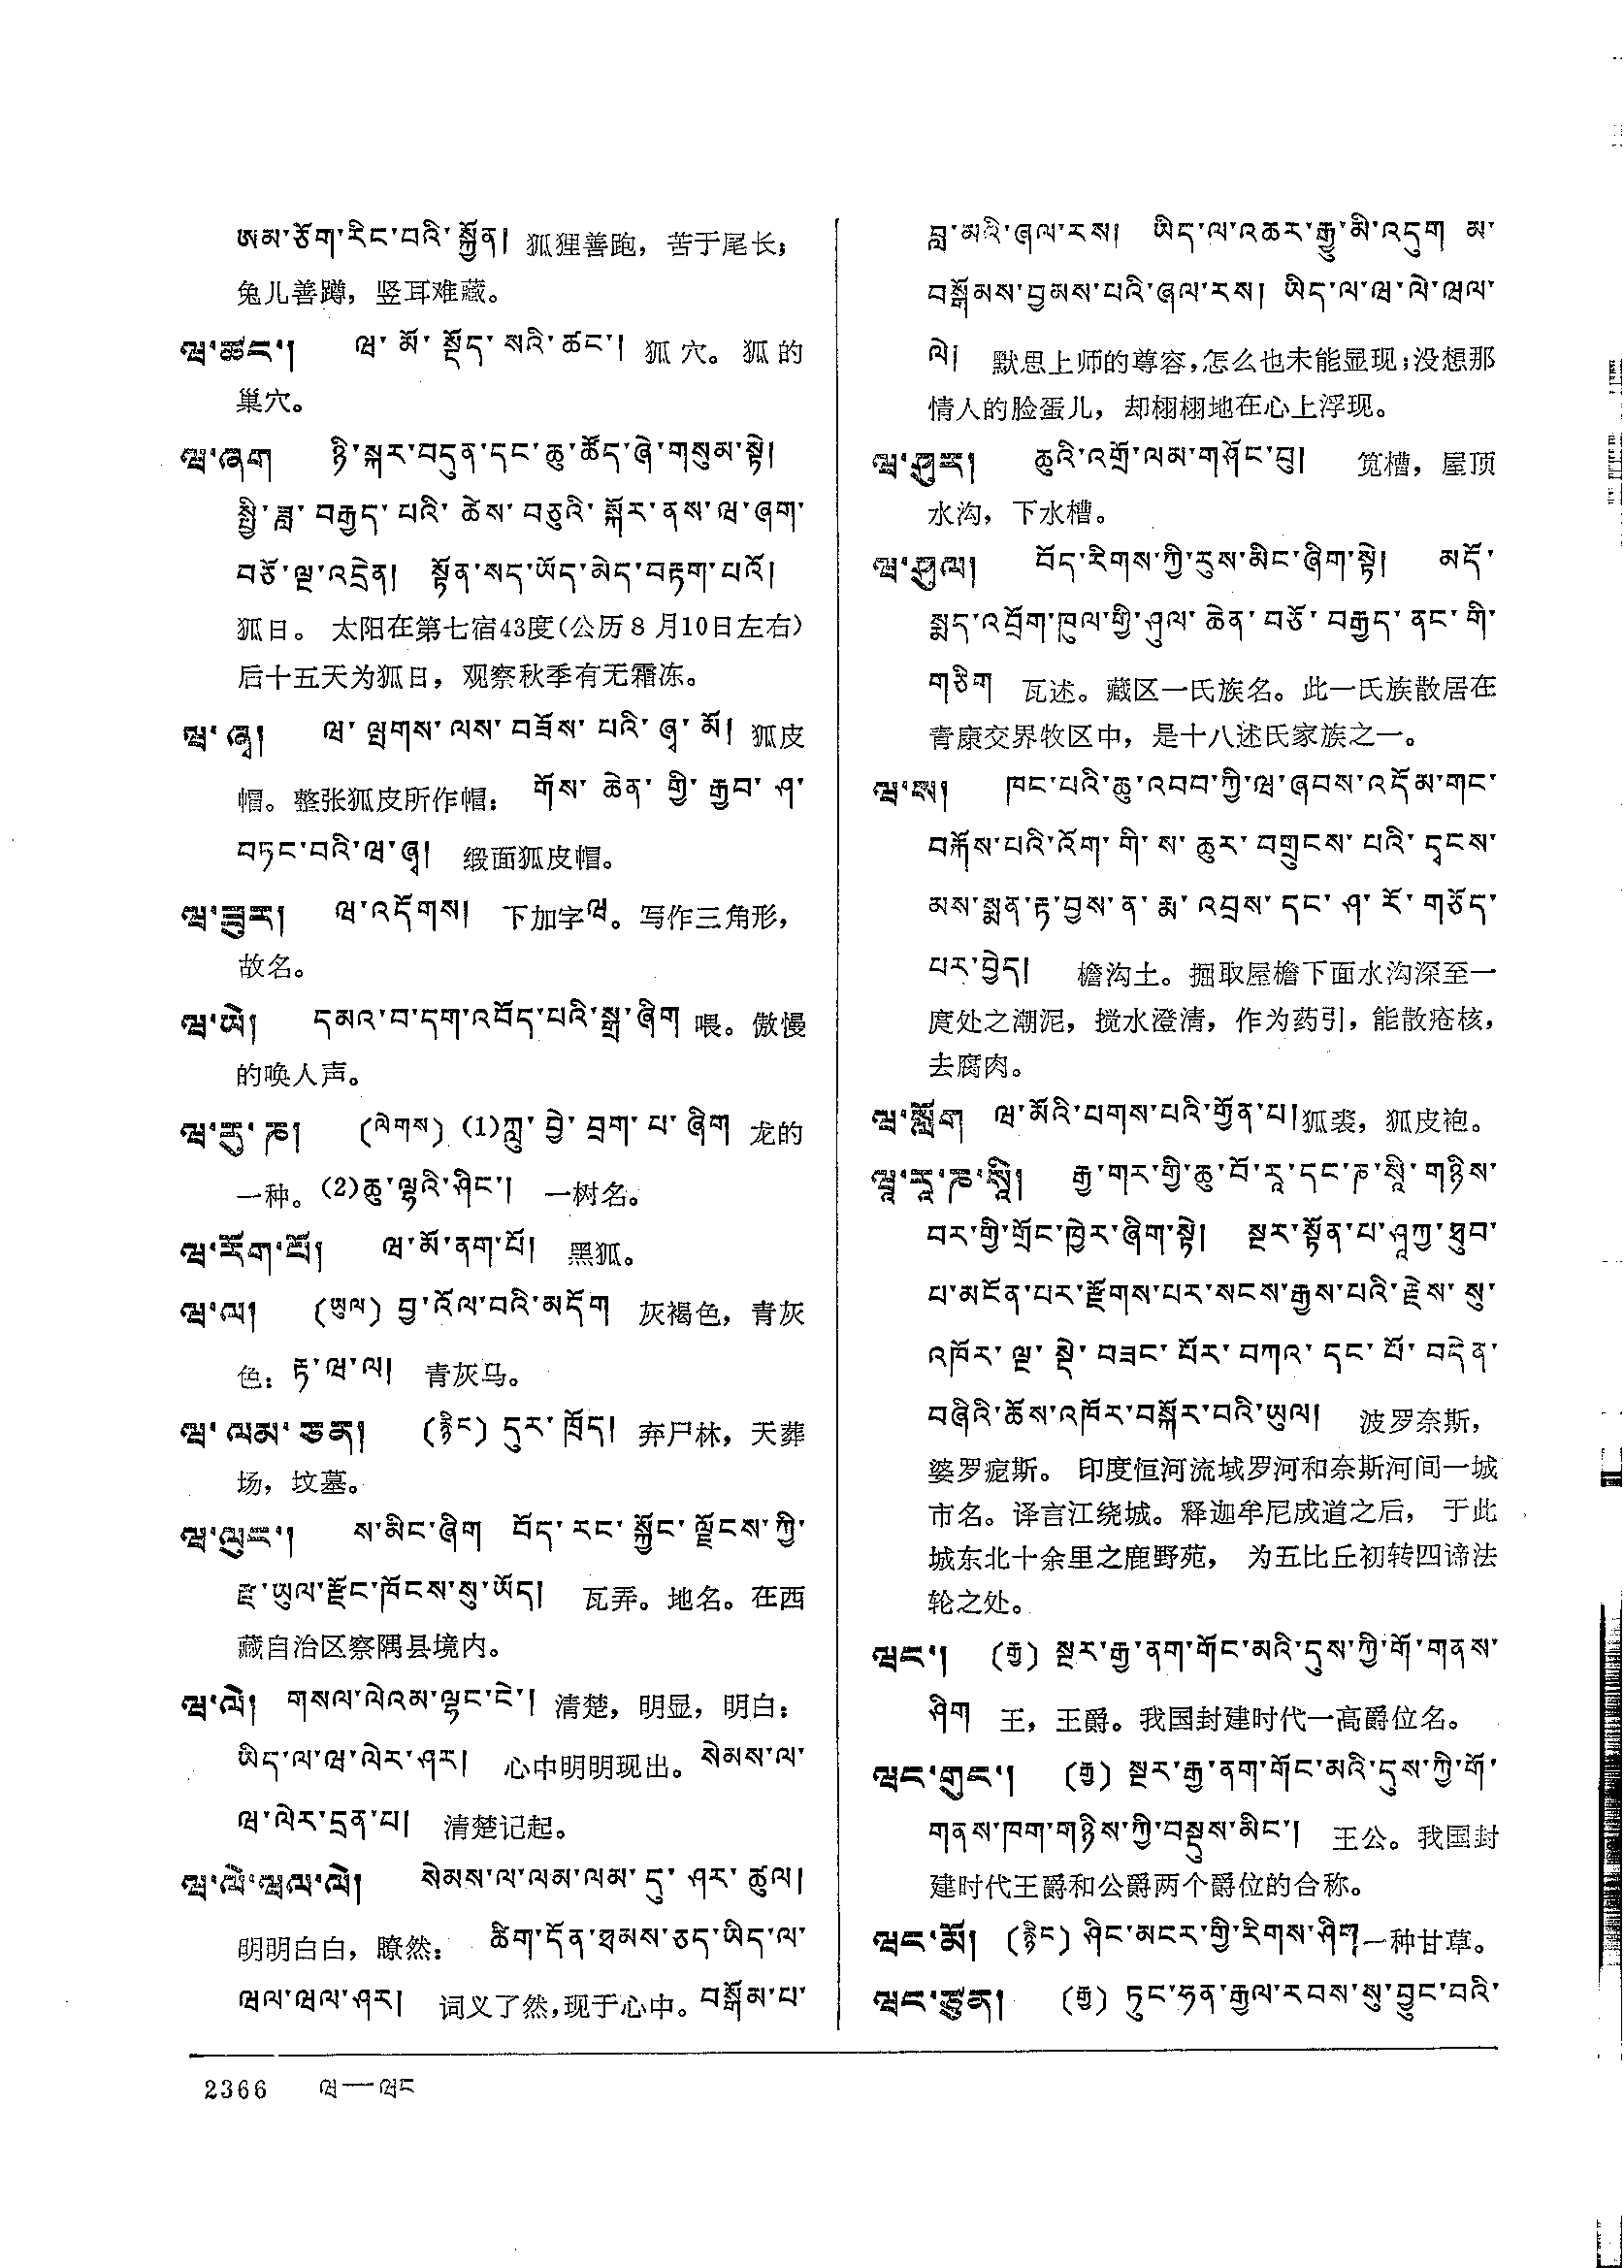 ཨམ་ཅོག་རིང་བའི་སྐྱོན། 狐狸善跑，苦于尾长；
兔儿善蹲，竖耳难藏。
ཝ་ཚང་། ཝ་མོ་སྡོད་སའི་ཚང་། 狐穴。狐的
巢穴。
ཝ་ཞག ཉི་སྐར་བདུན་དང་ཆུ་ཚོད་ཞེ་གསུམ་སྟེ།
སྤྱི་ཟླ་བརྒྱད་པའི་ཚེས་བཅུའི་སྐོར་ནས་ཝ་ཞག་
བཅོ་ལྔ་འདྲེན། སྟོན་སད་ཡོད་མེད་བརྟག་པའོ།
狐日。 太阳在第七宿43度(公历8月10日左右)
后十五天为狐日，观察秋季有无霜冻。
ཝ་ཞྭ། ཝ་ལྤགས་ལས་བཟོས་པའི་ཞྭ་མོ། 狐皮
帽。整张狐皮所作帽： གོས་ཆེན་གྱི་རྒྱབ་ཤ་
བཏང་བའི་ཝ་ཞྭ། 缎面狐皮帽。
ཝ་ཟུར། ཝ་འདོགས། 下加字ཝ。写作三角形，
故名。
ཝ་ཡེ། དམའ་བ་དག་འབོད་པའི་སྒྲ་ཞིག 喂。傲慢
的唤人声。
ཝ་རུ་ཎ། (ལེགས) (1)ཀླུ་བྱེ་བྲག་པ་ཞིག 龙的
一种。(2)ཆུ་ལྷའི་ཤིང་། 一树名。
ཝ་རོག་པོ། ཝ་མོ་ནག་པོ། 黑狐。
ཝ་ལ། (ཡུལ) བྱ་འོལ་བའི་མདོག 灰褐色，青灰
色：རྟ་ཝ་ལ། 青灰马。
ཝ་ལམ་ཅན། (རྙིང) དུར་ཁྲོད། 弃尸林，天葬
场，坟墓。
ཝ་ལུང་། ས་མིང་ཞིག བོད་རང་སྐྱོང་ལྗོངས་ཀྱི་
རྫ་ཡུལ་རྫོང་ཁོངས་སུ་ཡོད། 瓦弄。地名。在西
藏自治区察隅县境内。
ཝ་ལེ། གསལ་ལེའམ་ལྷང་ངེ་། 清楚，明显，明白：
ཡིད་ལ་ཝ་ལེར་ཤར། 心中明明现出。སེམས་ལ་
ཝ་ལེར་དྲན་པ། 清楚记起。
ཝ་ལེ་ཝལ་ལེ། སེམས་ལ་ལམ་ལམ་དུ་ཤར་ཚུལ།
明明白白，瞭然： ཚིག་དོན་ཐམས་ཅད་ཡིད་ལ་
ཝལ་ཝལ་ཤར། 词义了然,现于心中。བསྒོམ་པ་
བླ་མའི་ཞལ་རས། ཡིད་ལ་འཆར་རྒྱུ་མི་འདུག མ་
བསྒོམས་བྱམས་པའི་ཞལ་རས། ཡིད་ལ་ཝ་ལེ་ཝལ་
ལེ། 默思上师的尊容,怎么也未能显现;没想那
情人的脸蛋儿，却栩栩地在心上浮现。
ཝ་ཤུར། ཆུའི་འགྲོ་ལམ་གཤོང་བུ། 笕槽，屋顶
水沟，下水槽。
ཝ་ཤུལ། བོད་རིགས་ཀྱི་རུས་མིང་ཞིག་སྟེ། མདོ་
སྨད་འབྲོག་ཁུལ་གྱི་ཤུལ་ཆེན་བཅོ་བརྒྱད་ནང་གི་
གཅིག 瓦述。藏区一氏族名。此一氏族散居在
青康交界牧区中，是十八述氏家族之一。
ཝ་ས། ཁང་པའི་ཆུ་འབབ་ཀྱི་ཝ་ཞབས་འདོམ་གང་
བརྐོས་པའི་འོག་གི་ས་ཆུར་བགྲུངས་པའི་དྭངས་
མས་སྨན་རྟ་བྱས་ན་རྨ་འབྲས་དང་ཤ་རོ་གཅོད་
པར་བྱེད། 檐沟土。掘取屋檐下面水沟深至一
庹处之潮泥，搅水澄清，作为药引，能散疮核，
去腐肉。
ཝ་སློག ཝ་མོའི་པགས་པའི་གྱོན་པ།狐裘，狐皮袍。
ཝཱ་རཱ་ཎ་སཱི། རྒྱ་གར་གྱི་ཆུ་བོ་རཱ་དང་ཎ་སཱི་གཉིས་
བར་གྱི་གྲོང་ཁྱེར་ཞིག་སྟེ། སྔར་སྟོན་པ་ཤཱཀྱ་ཐུབ་
པ་མངོན་པར་རྫོགས་པར་སངས་རྒྱས་པའི་རྗེས་སུ་
འཁོར་ལྔ་སྡེ་བཟང་པོར་བཀའ་དང་པོ་བདེན་
བཞིའི་ཆོས་འཁོར་བསྐོར་བའི་ཡུལ། 波罗奈斯，
婆罗痆斯。 印度恒河流域罗河和奈斯河间一城
市名。译言江绕城。释迦牟尼成道之后， 于此
城东北十余里之鹿野苑， 为五比丘初转四谛法
轮之处。
ཝང་། (རྒྱ) སྔར་རྒྱ་ནག་གོང་མའི་དུས་ཀྱི་གོ་གནས་
ཤིག 王，王爵。我国封建时代一高爵位名。
ཝང་གུང་། (རྒྱ) སྔར་རྒྱ་ནག་གོང་མའི་དུས་ཀྱི་གོ་
གནས་ཁག་གཉིས་ཀྱི་བསྡུས་མིང་། 王公。我国封
建时代王爵和公爵两个爵位的合称。
ཝང་མོ། (རྙིང) ཤིང་མངར་གྱི་རིགས་ཤིག 一种甘草。
ཝང་ཙྰུན། (རྒྱ) ཏུང་ཧན་རྒྱལ་རབས་སུ་བྱུང་བའི་
2366 ཝ—ཝང